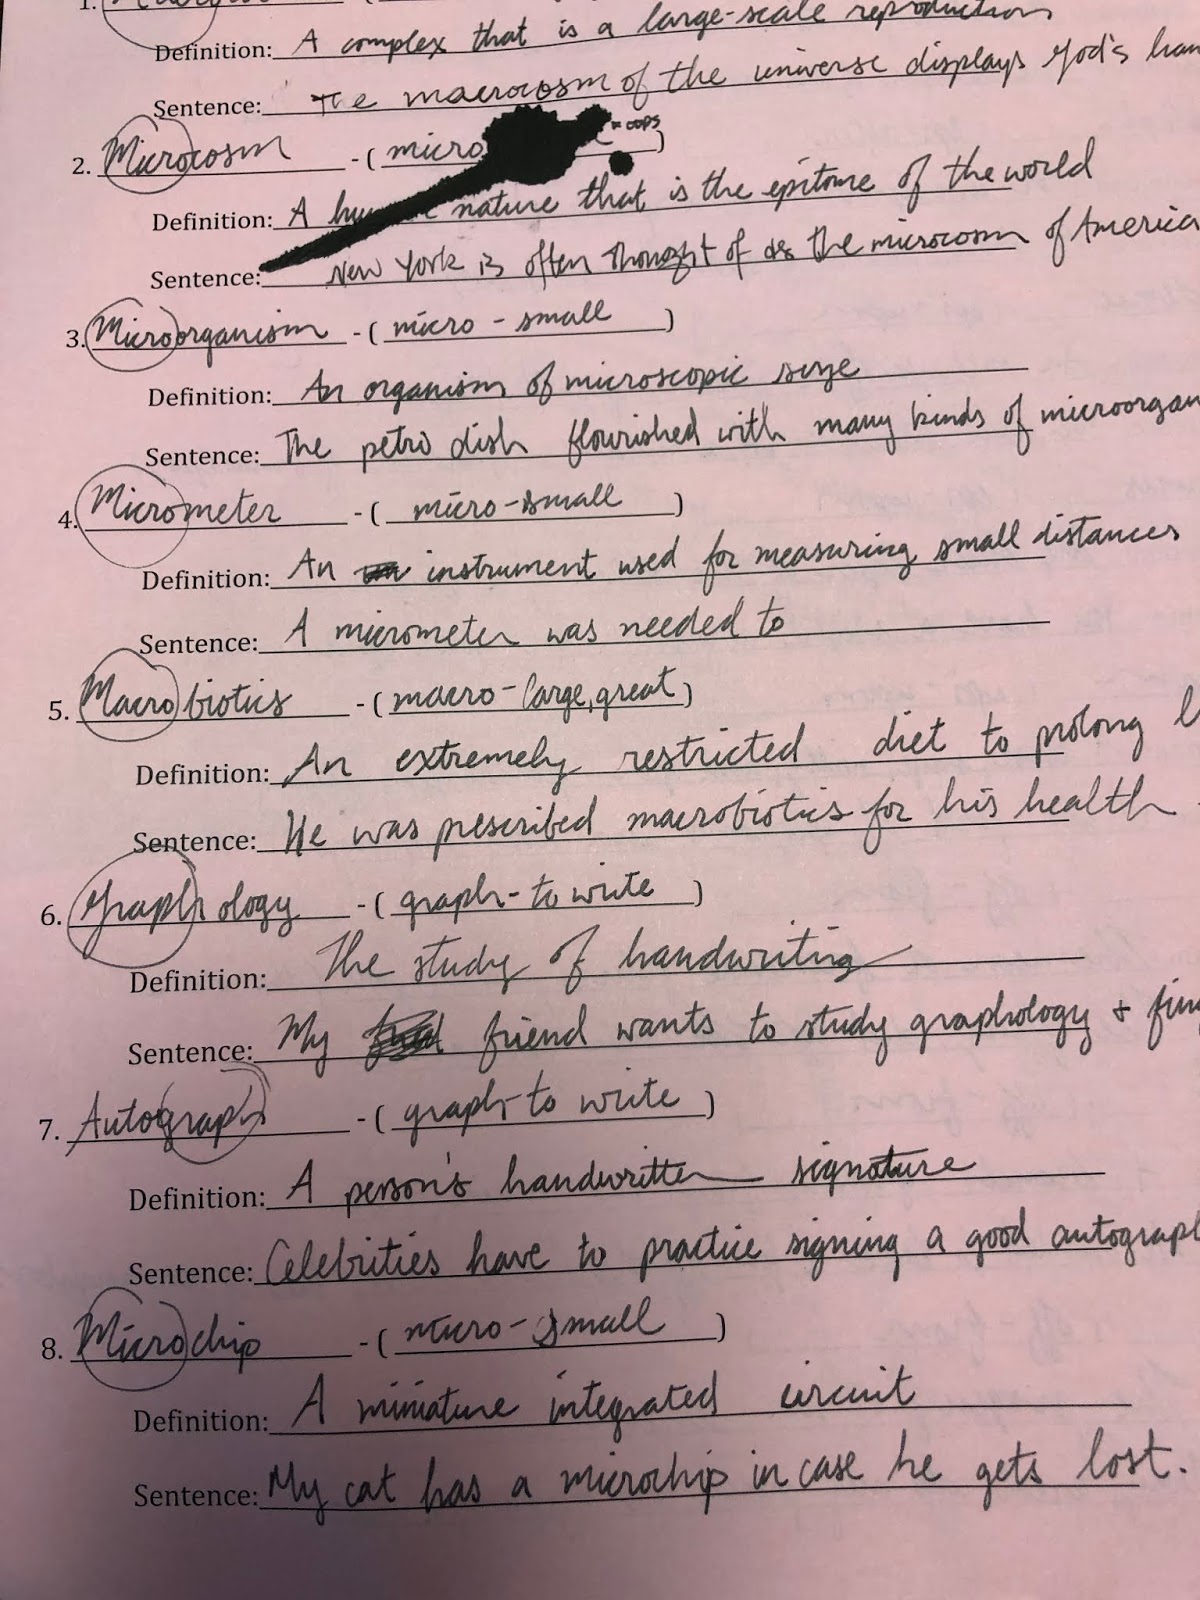 1.
Definition: A complex that is a large-scale reproduction
Sentence: The macrocosm of the universe displays God's
2. Microcosm - ( micro = oops )
Definition: A nature that is the epitome of the world
Sentence: New York is often thought of as the microcosm of America
3. Microorganism - ( micro - small )
Definition: An organism of microscopic size
Sentence: The petro dish flourished with many kinds of microorgan
4. Micrometer - ( micro-small )
Definition: An instrument used for measuring small distances
Sentence: A micrometer was needed to
5. Macrobiotics - ( macro - large, great )
Definition: An extremely restricted diet to prolong
Sentence: He was prescribed macrobiotics for his health
6. Graphology - ( graph - to write )
Definition: The study of handwriting
Sentence: My friend wants to study graphology +
7. Autograph - ( graph - to write )
Definition: A person's handwritten signature
Sentence: Celebrities have to practice signing a good autograph
8. Microchip - ( micro - small )
Definition: A miniature integrated circuit
Sentence: My cat has a microchip in case he gets lost.